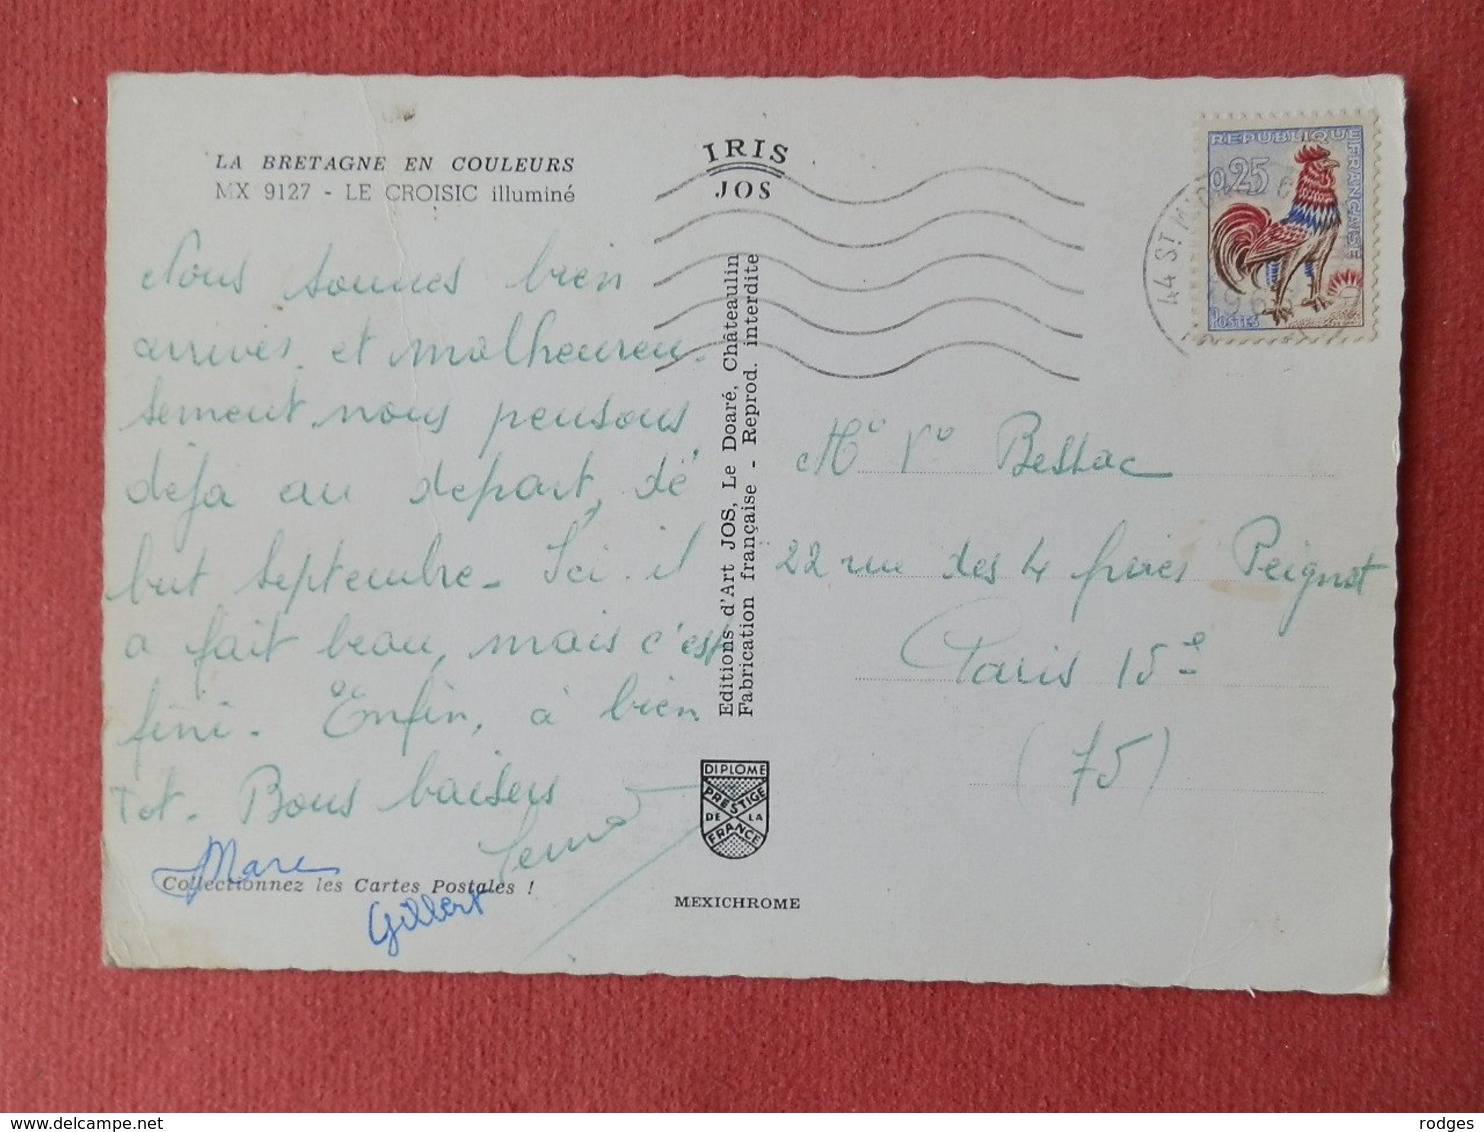 LA BRETAGNE EN COULEURS
MX 9127 - LE CROISIC illuminé
IRIS
JOS
REPUBLIQUE FRANCAISE
0,25
POSTES
44 ST
Nous sommes bien
arrivés, et malheureu-
sement nous pensons
déja au depart, dé
but septembre - Ici il
a fait beau, mais c'est
fini. Enfin, à bien
tot. Bons baisers
Marc
Gilbert
Collectionnez les Cartes Postales !
Editions d'Art JOS, Le Doaré, Châteaulin
Fabrication française - Reprod. interdite
DIPLOME
PRESTIGE
DE LA
FRANCE
MEXICHROME
22 rue des 4 frères Peignot
Paris 15e
(75)
rodges delcampe.net